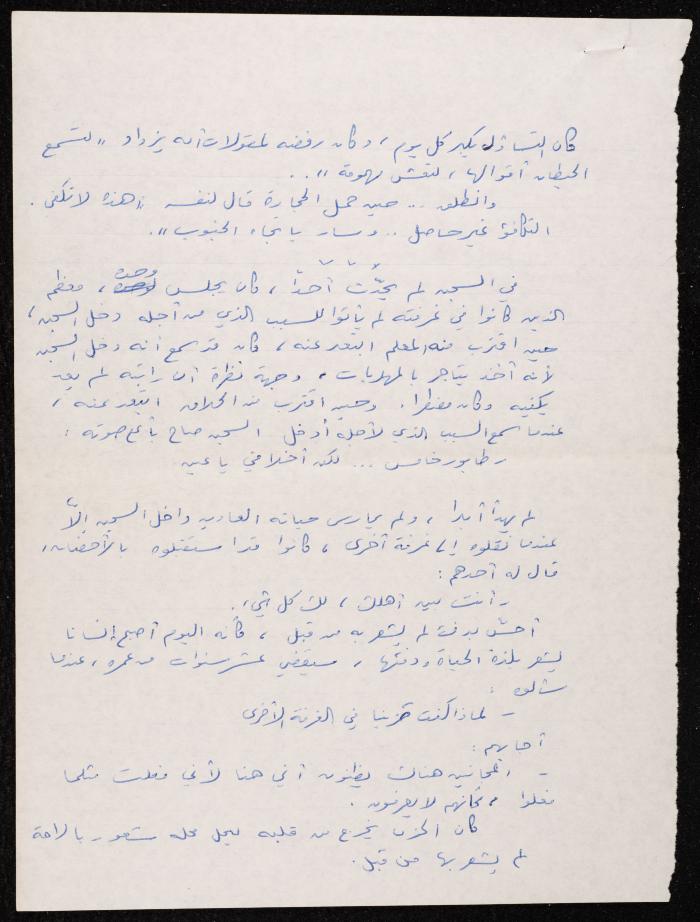 كان التساؤل يكبر كل يوم ، وكان رفضه لمقولات أمه يزداد " لتسمع
الحيطان أقوالها ، لتفتش بهومة " ..
وانطلق .. حين حمل الحجارة قال لنفسه " هذه لا تكفي .
التكافؤ غير حاصل .. وسار باتجاه الجنوب ".
في السجن لم يحدّث أحداً ، كان يجلس وحده ، معظم
الذين كانوا في غرفته لم يأتوا للسبب الذي من أجله دخل السجن ،
حين اقترب منه المعلم ابتعد عنه ، كان قد سمع أنه دخل السجن
لأنه أخذ يتاجر بالمهربات ، وجهة نظره أن راتبه لم يعد
يكفيه وكان مضطرا . وحين اقترب منه الحلاق ابتعد عنه ،
عندما سمع السبب الذي لأجله أدخل السجن صاح بأعلى صوته :
طابور خامس ... لكن أخلاقي يا عين
لم يهدأ أبدا ، ولم يمارس حياته العادية داخل السجن إلاّ
عندما نقلوه إلى غرفة أخرى ، كانوا قد استقبلوه بالأحضان ،
قال له أحدهم :
- أنت بين أهلك ، لك كل شيء .
أحسّ بدفء لم يشعر به من قبل ، كأنه اليوم أصبح إنسانا
يشعر بلذة الحياة ودفئها ، سيقضي عشر سنوات من عمره ، عندما
سألوه :
- لماذا كنت حزينا في الغرفة الأخرى
أجابهم :
- المجانين هناك يظنون أني هنا لأني فعلت مثلما
فعلوا ، كأنهم لا يعرفون .
كان الحزن يخرج من قلبه ليحل محله شعور بالراحة
لم يشعر بها من قبل .